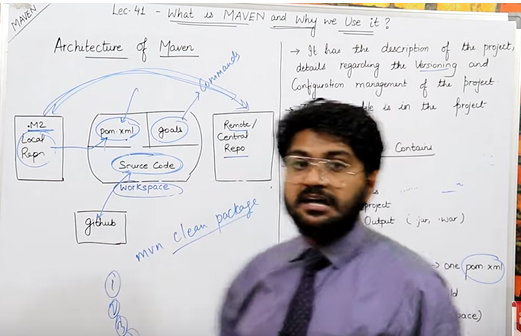 MAVEN
Lec-41 - What is MAVEN and Why we Use it?
Architecture of Maven
Commands
.M2
Local
Repo
pom.xml
goals
Source Code
Workspace
Remote/
Central
Repo
github
mvn clean package
1
2
3
→ It has the description of the project,
details regarding the Versioning and
Configuration management of the project
is in the project
Contains
project
Output (.jar, .war)
→ one pom.xml